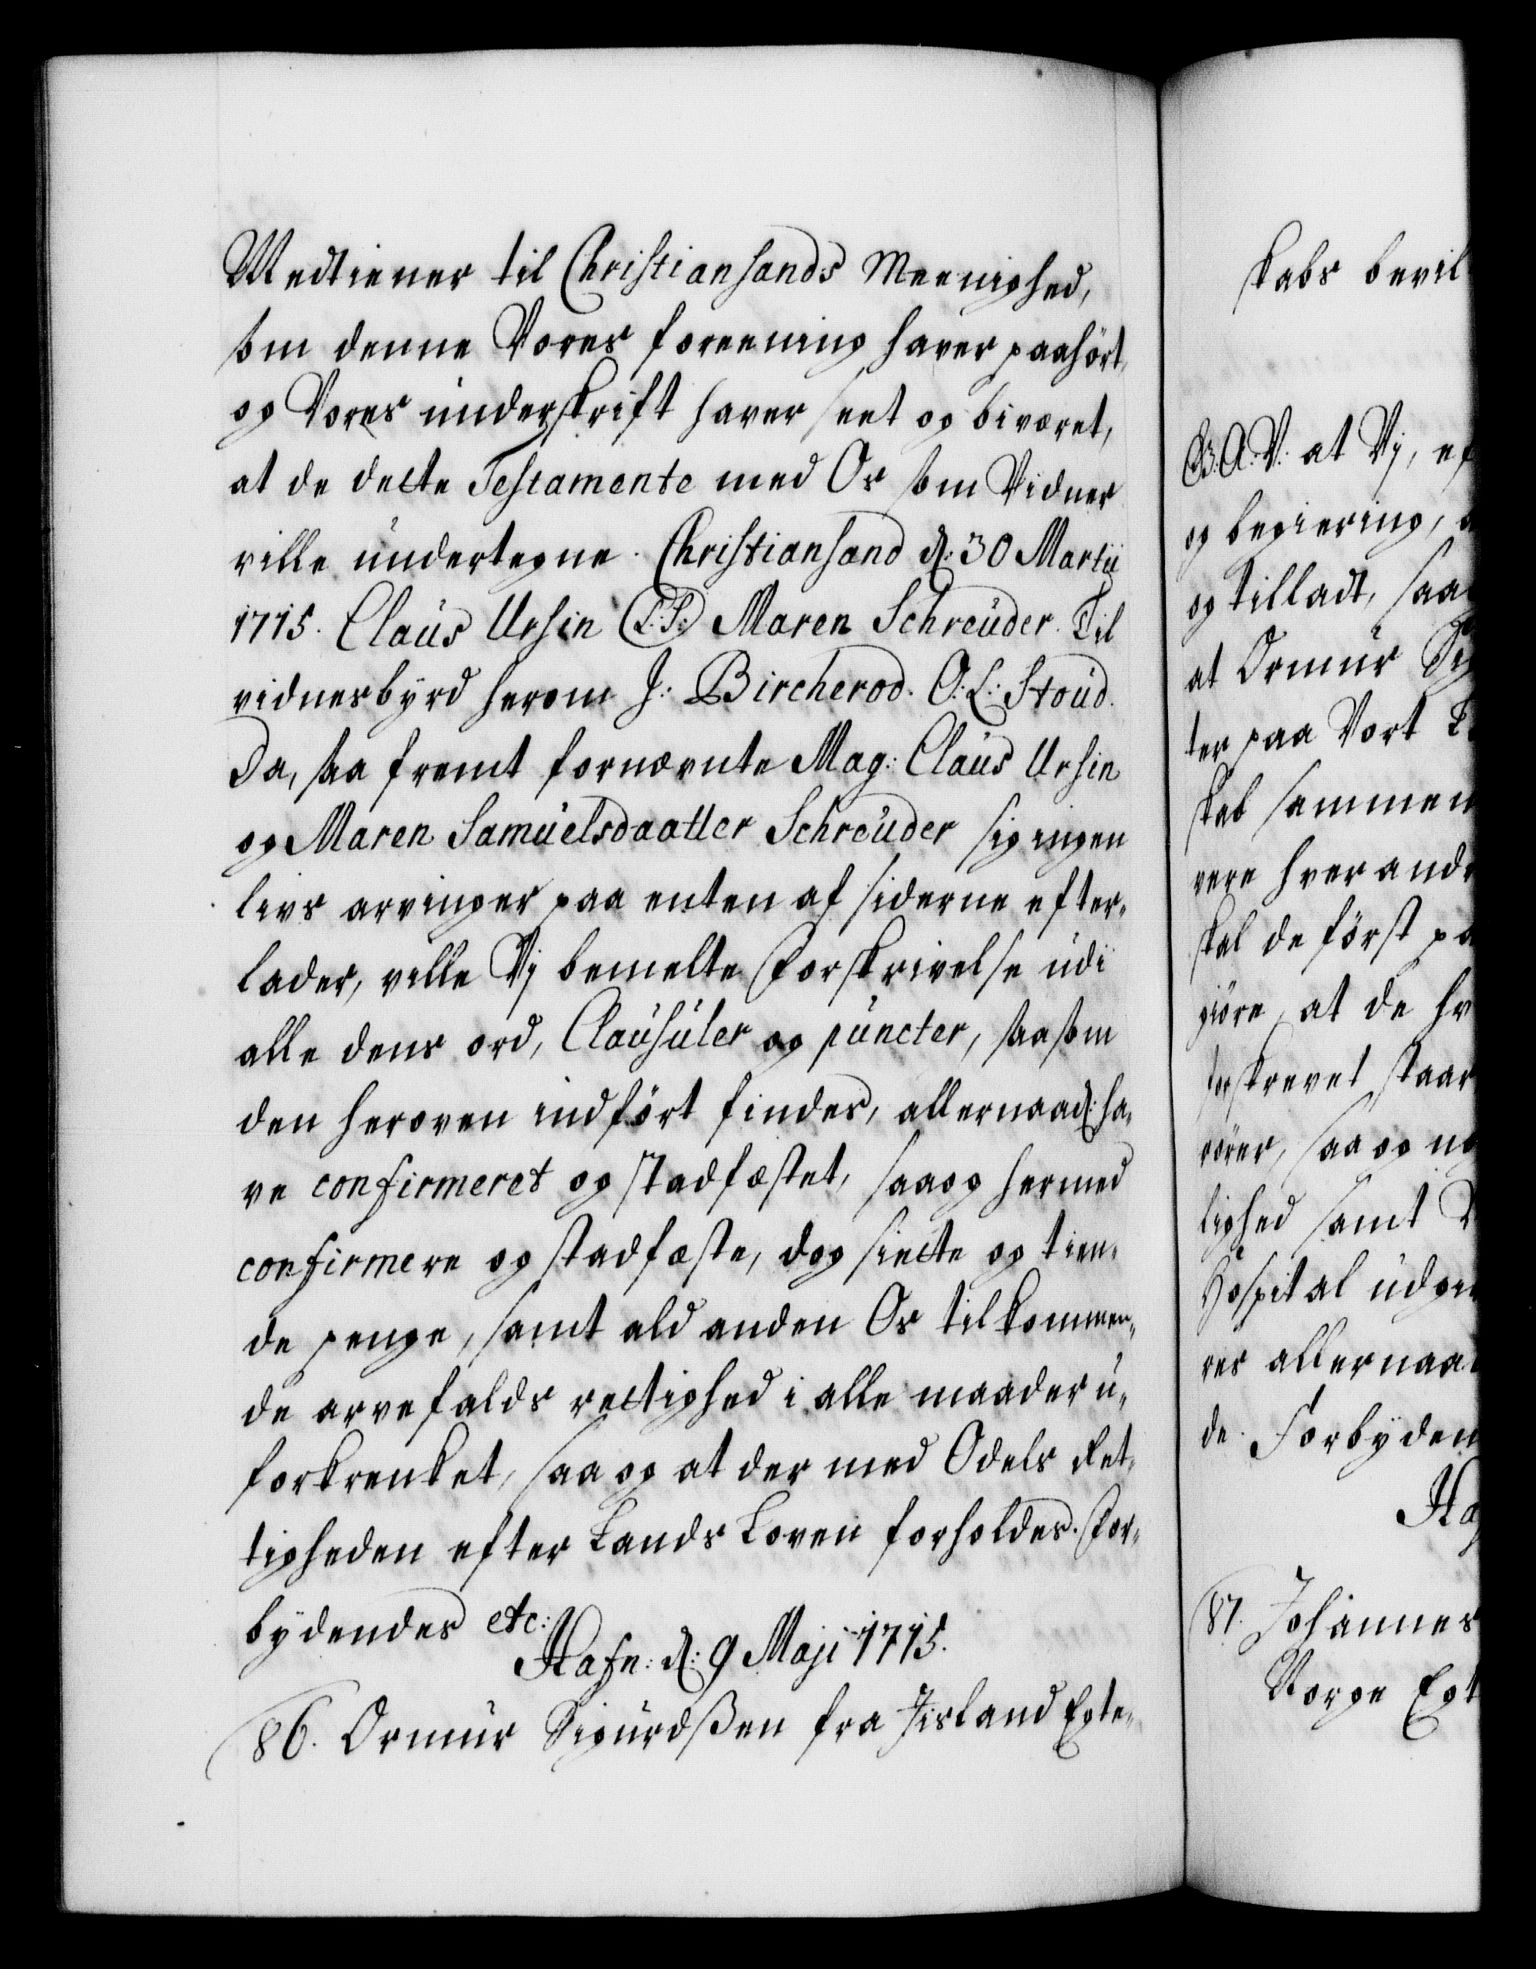 Medtiener til Christiansands Meenighed,
som denne Vores foreening haver paahört,
og Vores underskrift haver seet og biværet,
at de dette Testamente med Os som Vidner
ville undertegne. Christiansand d: 30 Martii
1715. Claus Ursin (L.S.) Maren Schreuder. Til
vidnesbyrd herom J: Bircherod. O: L: Stoud.
Da, saa fremt fornævnte Mag: Claus Ursin
og Maren Samuelsdaatter Schreuder sig ingen
livs arvinger paa enten af siderne efter-
lader, ville Vj bemelte Forskrivelse udi
alle dens ord, Clausuler og puncter, saasom
den heroven indfört findes, allernaad: ha-
ve confirmeret og stadfæstet, saa og hermed
confirmere og stadfæste, dog siette og tien-
de penge, samt ald anden Os tilkommen-
de arvefalds rettighed i alle maader u-
forkrenket, saa og at der med Odels Ret-
tigheden efter Lands Loven forholdes. For-
bydendes etc:
Hafn: d: 9 Maji 1715.
86. Ormur Sigurdßen fra Jisland Egte-
skabs bevil
G. A. V. at Vj, ef
og begiering,
og tilladt, saa
at Ormur Sig
ter paa Vort
skab sammen
vere hver andr
skal de först pa
giöre, at de hv
terskrevet staar
rörer, saa og
lighed samt
Hospital udgi
res allernaa
de. Forbyden
Haf
87. Johannes
Norge Egt